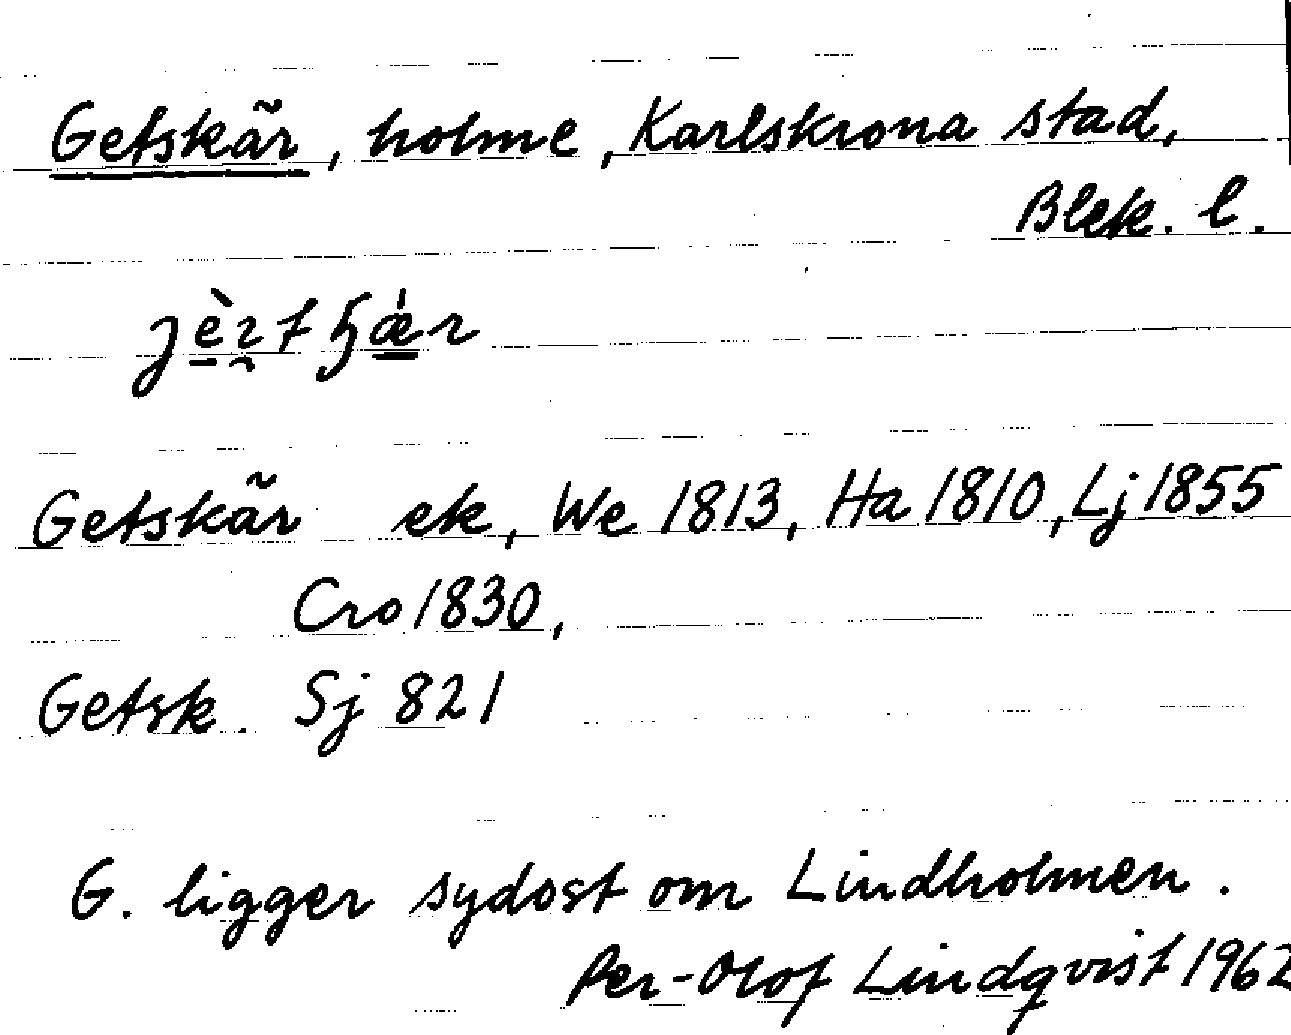 Getskär, holme, Karlskrona stad,
Blek. l.
Getskär ek, We 1813, Ha 1810, Lj 1855
Cro 1830,
Getsk. Sj 821
G. ligger sydost om Lindholmen.
Per-Olof Lindqvist 1962